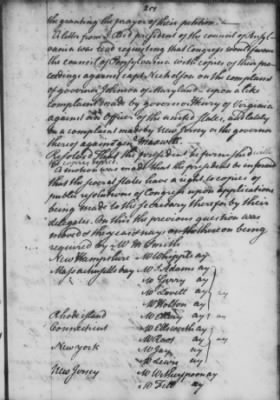 217
the granting the prayer of their petition.
A letter from J. Reed president of the council of Pensyl-
vania was read requesting that Congress would favour
the council of Pensylvania with copies of their pro-
ceedings against capt Nicholson on the complaint
of governor Johnson of Maryland: upon a like
complaint made by governor Henry of Virginia
against an Officer of the united states, and lately
on a complaint made by New Jersey on the governor
thereof against gen. Maxwell.
Resolved That the president be furnished with
the copies request
A motion was made that the president be informed
that the several states have a right to copies of
public resolutions of Congress upon applications
being made to the secretary therefor by their
delegates. On this the previous question was
moved & the yeas and nays thereon being
required by Mr M Smith
New Hampshire Mr Whipple ay
Massachusetts bay Mr S Adams ay
Mr Gerry ay
Mr Lovell ay
Mr Holton ay
Rhode island Mr Ellery ay
Connecticut Mr Ellsworth ay
Mr Root ay
New york Mr Jay ay
Mr Lewis ay
New Jersey Mr Witherspoon ay
Mr Fell ay